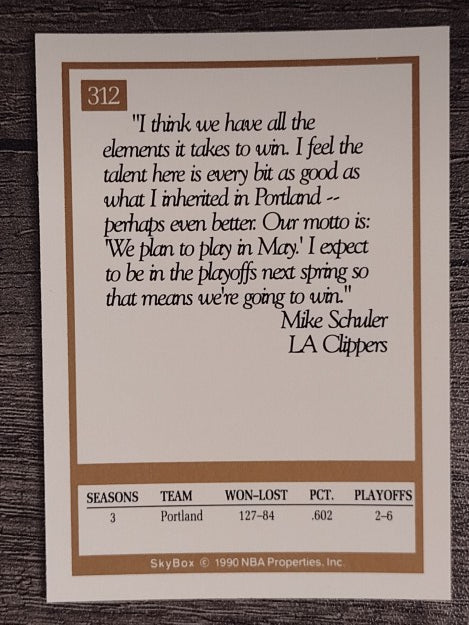 312
"I think we have all the
elements it takes to win. I feel the
talent here is every bit as good as
what I inherited in Portland --
perhaps even better. Our motto is:
'We plan to play in May.' I expect
to be in the playoffs next spring so
that means we're going to win."
Mike Schuler
LA Clippers
SEASONS TEAM WON-LOST PCT. PLAYOFFS
3 Portland 127-84 .602 2-6
SkyBox © 1990 NBA Properties, Inc.